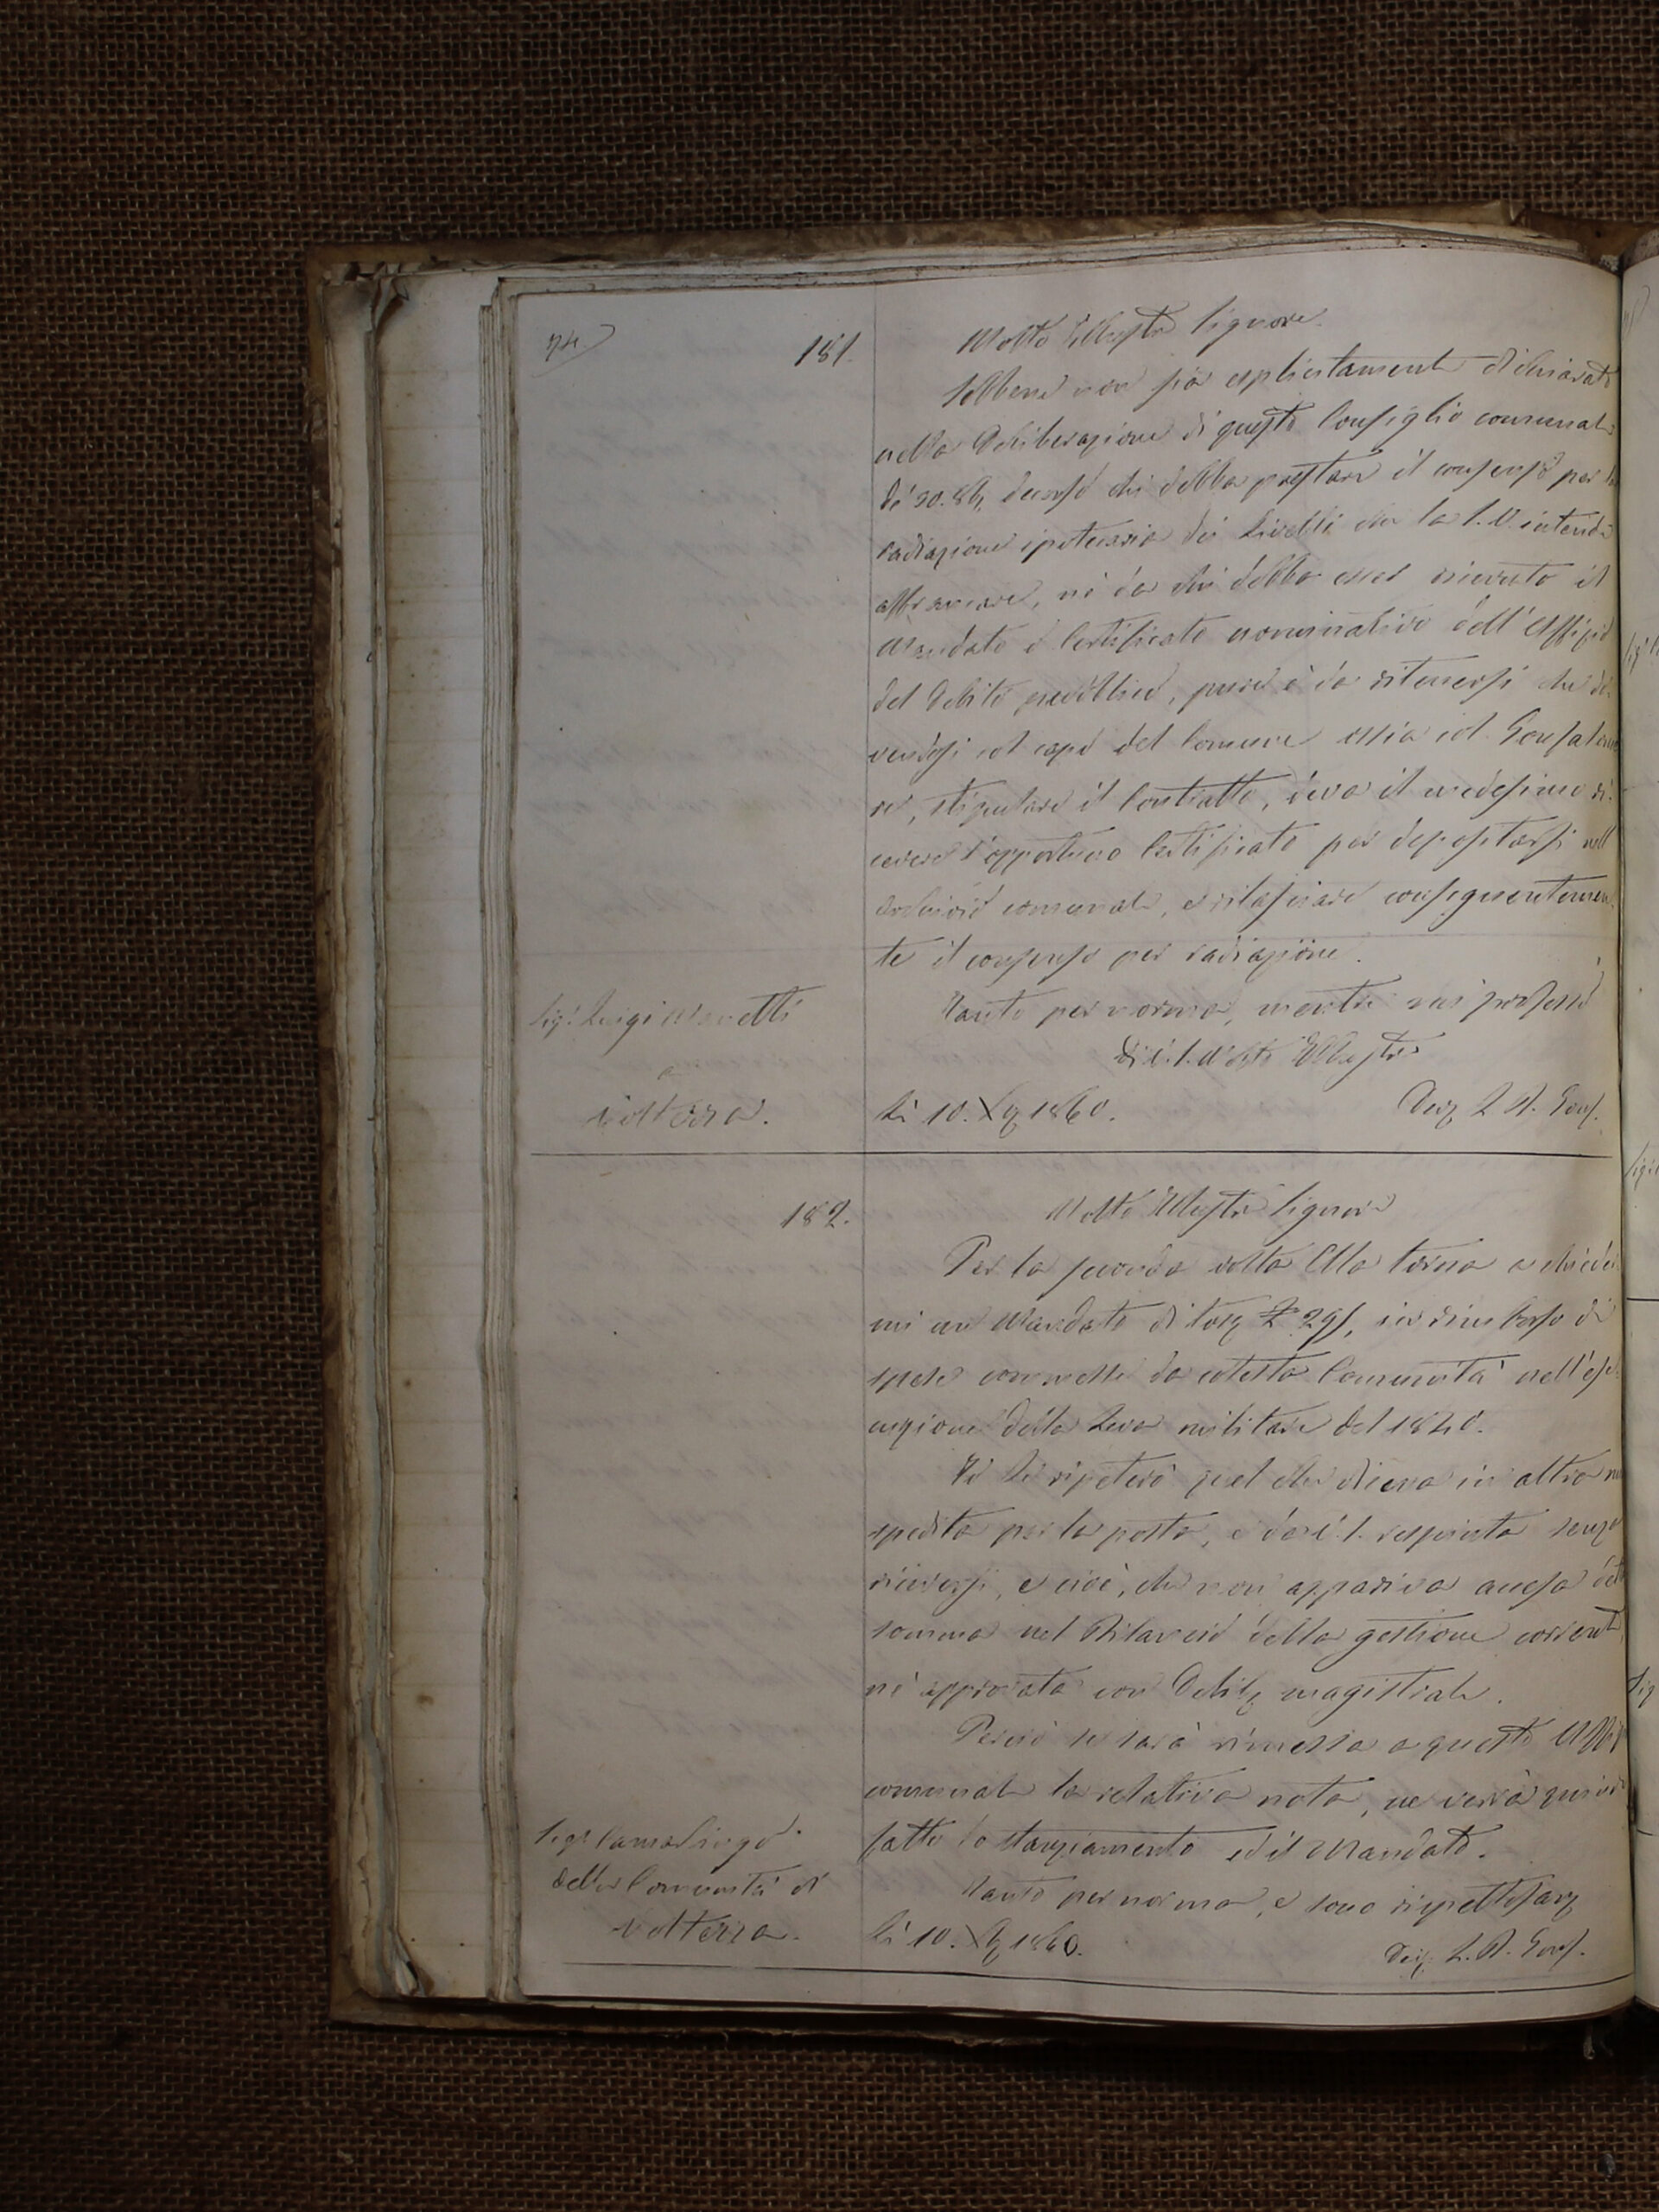 74
181.
Molto Illustre Signore
Sebbene non sia esplicitamente dichiarato
nella Deliberazione di questo Consiglio comunale
de' 20. 8b. decorso chi debba prestare il consenso per la
radiazione ipotecaria dei Livelli che la S. V. intende
affrancare, nè da chi debba esser ricevuto il
Mandato o Certificato nominativo dell'Uffizio
del Debito pubblico, pure è da ritenersi che do-
vendosi col capo del Comune ossia col Gonfalonie-
re, stipulare il Contratto, deva il medesimo ri-
cevere l'opportuno Certificato per depositarsi nell'
archivio comunale, e rilasciare conseguentemen-
te il consenso per radiazione.
Tanto per norma, mentre mi professo
Di V. S. Molto Illustre
Sig. Luigi
a
Volterra.
Li 10. Xb 1860.
Dev. L. A. Gonf.
182.
Molto Illustre Signore
Per la seconda volta Ella torna a chieder-
mi un Mandato di tosc. £ 29, in rimborso di
spese commesse da cotesta Comunità nell'ese-
cuzione della Leva militare del 1840.
Io Le ripeterò quel che diceva in altra mia
spedita per la posta, e da V. S. respinta senza
riceversi, e cioè, che non appariva ancora detta
somma nel Bilancio della gestione corrente,
nè approvata con Delib. magistrale.
Perciò se sarà rimessa a questo Uffizio
comunale la relativa nota, ne verrà quindi
fatto lo stanziamento ed il Mandato.
Tanto per norma, e sono rispettosam.
Sig. Camarlingo
della Comunità di
Volterra.
Li 10. Xb 1860.
Dev. L. A. Gonf.